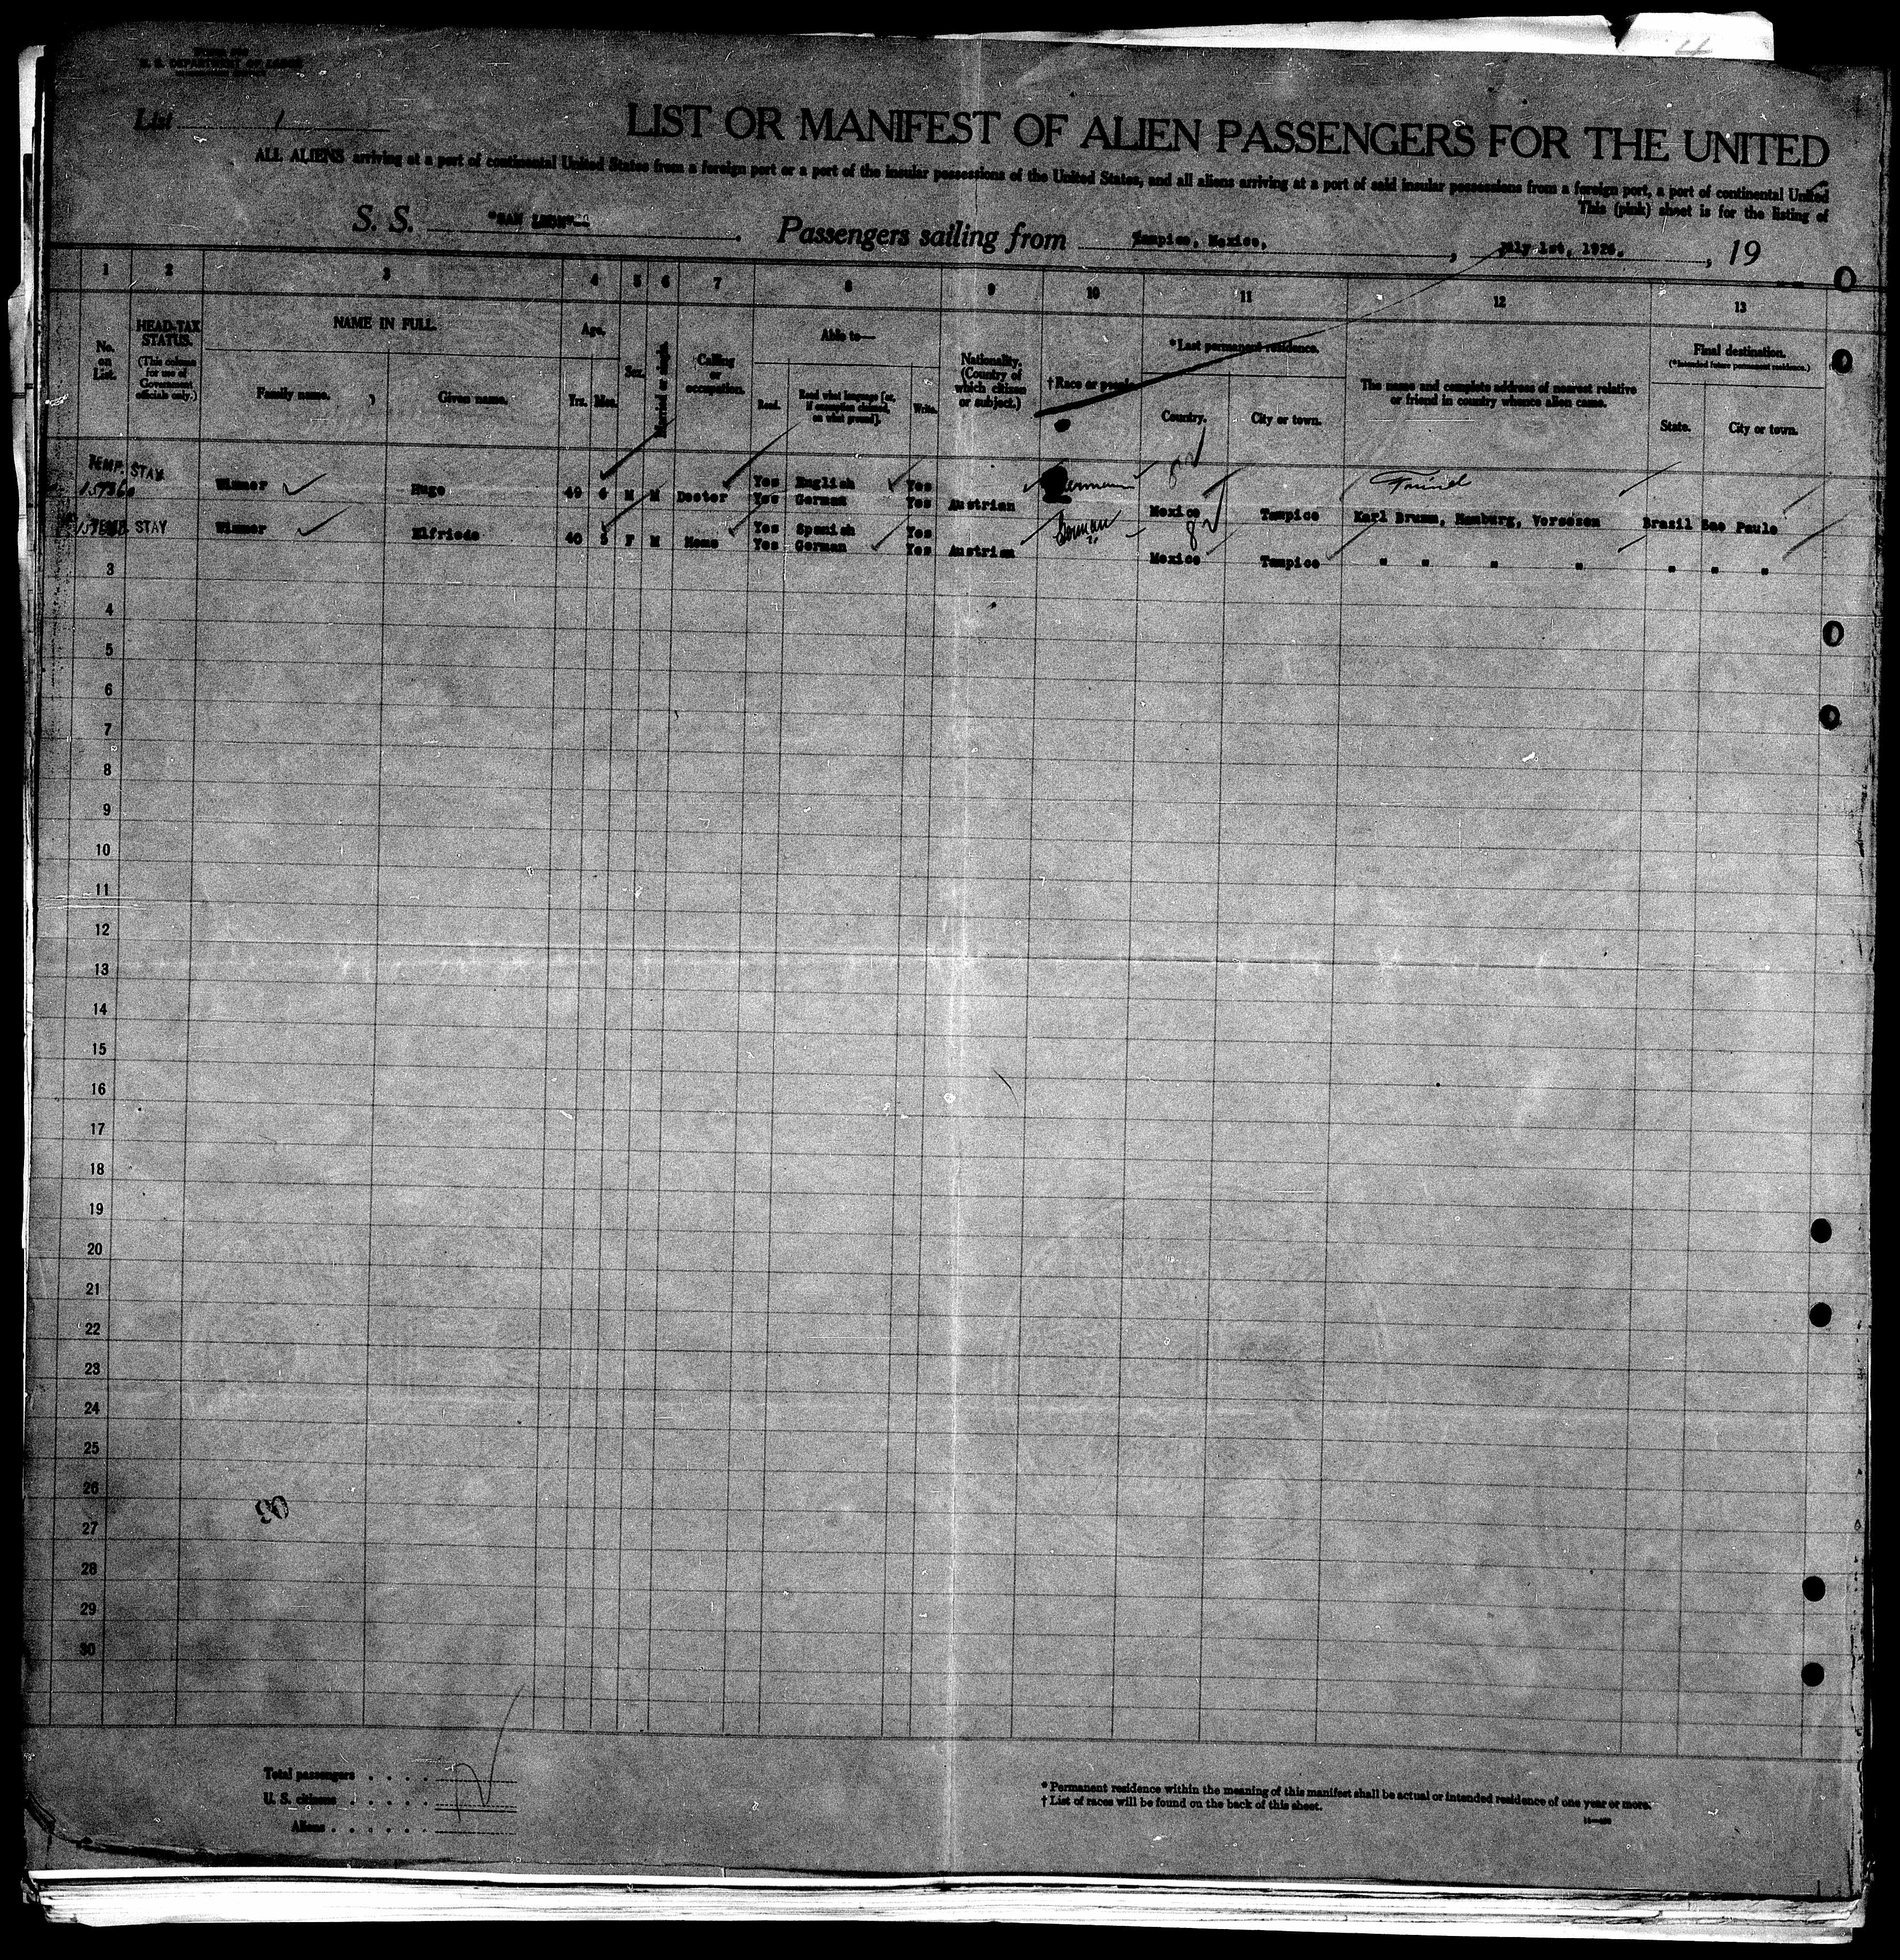 U. S. DEPARTMENT OF LABOR
List 1
LIST OR MANIFEST OF ALIEN PASSENGERS FOR THE UNITED
ALL ALIENS arriving at a port of continental United States from a foreign port or a port of the insular possessions of the United States, and all aliens arriving at a port of said insular possessions from a foreign port, a port of continental United
This (pink) sheet is for the listing of
S. S. "SAN
Passengers sailing from Tampico, Mexico, July 1st, 1926. , 19
1 2 3 4 5 6 7 8 9 10 11 12 13
No. on List.
HEAD-TAX STATUS.
(This column for use of Government officials only.)
NAME IN FULL.
Family name.
Given name.
Age.
Yrs. Mos.
Sex.
Married or single.
Calling or occupation.
Able to—
Read.
Read what language [or, if exemption claimed, on what ground].
Write.
Nationality. (Country of which citizen or subject.)
† Race or people.
* Last permanent residence.
Country.
City or town.
The name and complete address of nearest relative or friend in country whence alien came.
Final destination.
(* Intended future permanent residence.)
State.
City or town.
TEMP. STAY Wimmer Hugo 49 6 M M Doctor Yes English Yes
Yes German Yes Austrian German Mexico Tampico Friend
Karl Brumm, Hamburg, Vorsesen Brazil Sao Paulo
TEMP. STAY Wimmer Elfriede 40 5 F M Home Yes Spanish Yes
Yes German Yes Austrian German " Mexico Tampico " " " " " " "
3
4
5
6
7
8
9
10
11
12
13
14
15
16
17
18
19
20
21
22
23
24
25
26
27
28
29
30
Total passengers . . . .
U. S. citizens . . . . .
Aliens . . . . . .
* Permanent residence within the meaning of this manifest shall be actual or intended residence of one year or more.
† List of races will be found on the back of this sheet.